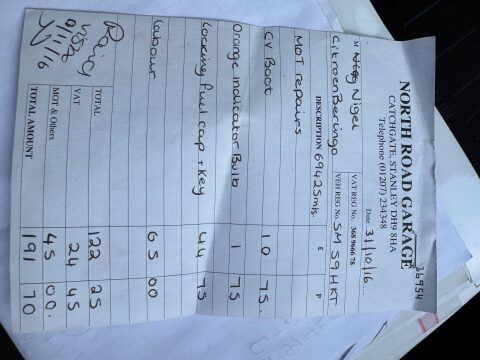 16954
NORTH ROAD GARAGE
CATCHGATE, STANLEY DH9 8HA
Telephone (01207) 234348
Date 31/10/16
M Nigel
VAT REG No. 368 9666 78
Citroen Beringo
VEH REG No. SM59HKT
DESCRIPTION 69425mls. £ P
MOT repairs
CV Boot 10 75.
Orange Indicator Bulb 1 75
Locking fuel cap + key 44 75
Labour 65 00
TOTAL 122 25
VAT 24 45
MOT & Others 45 00.
TOTAL AMOUNT 191 70